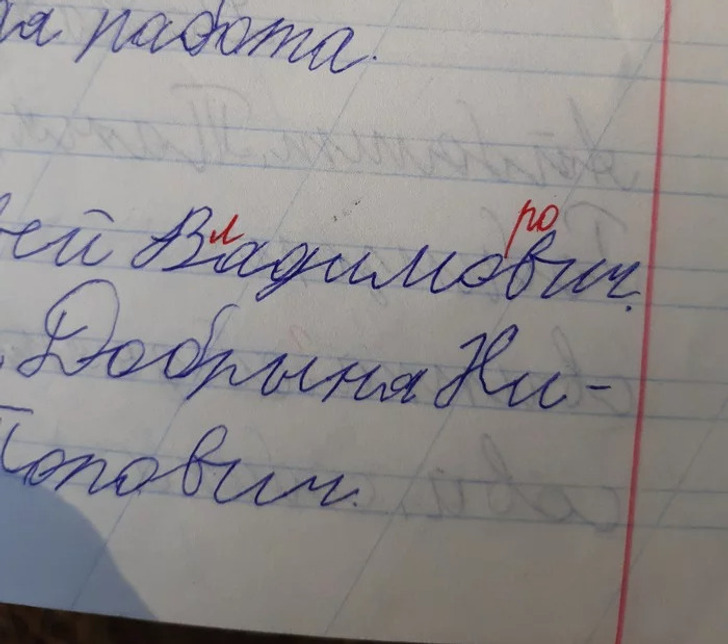 ая работа.
л ро
вей Вадимович.
Добрыня Ни-
Попович.